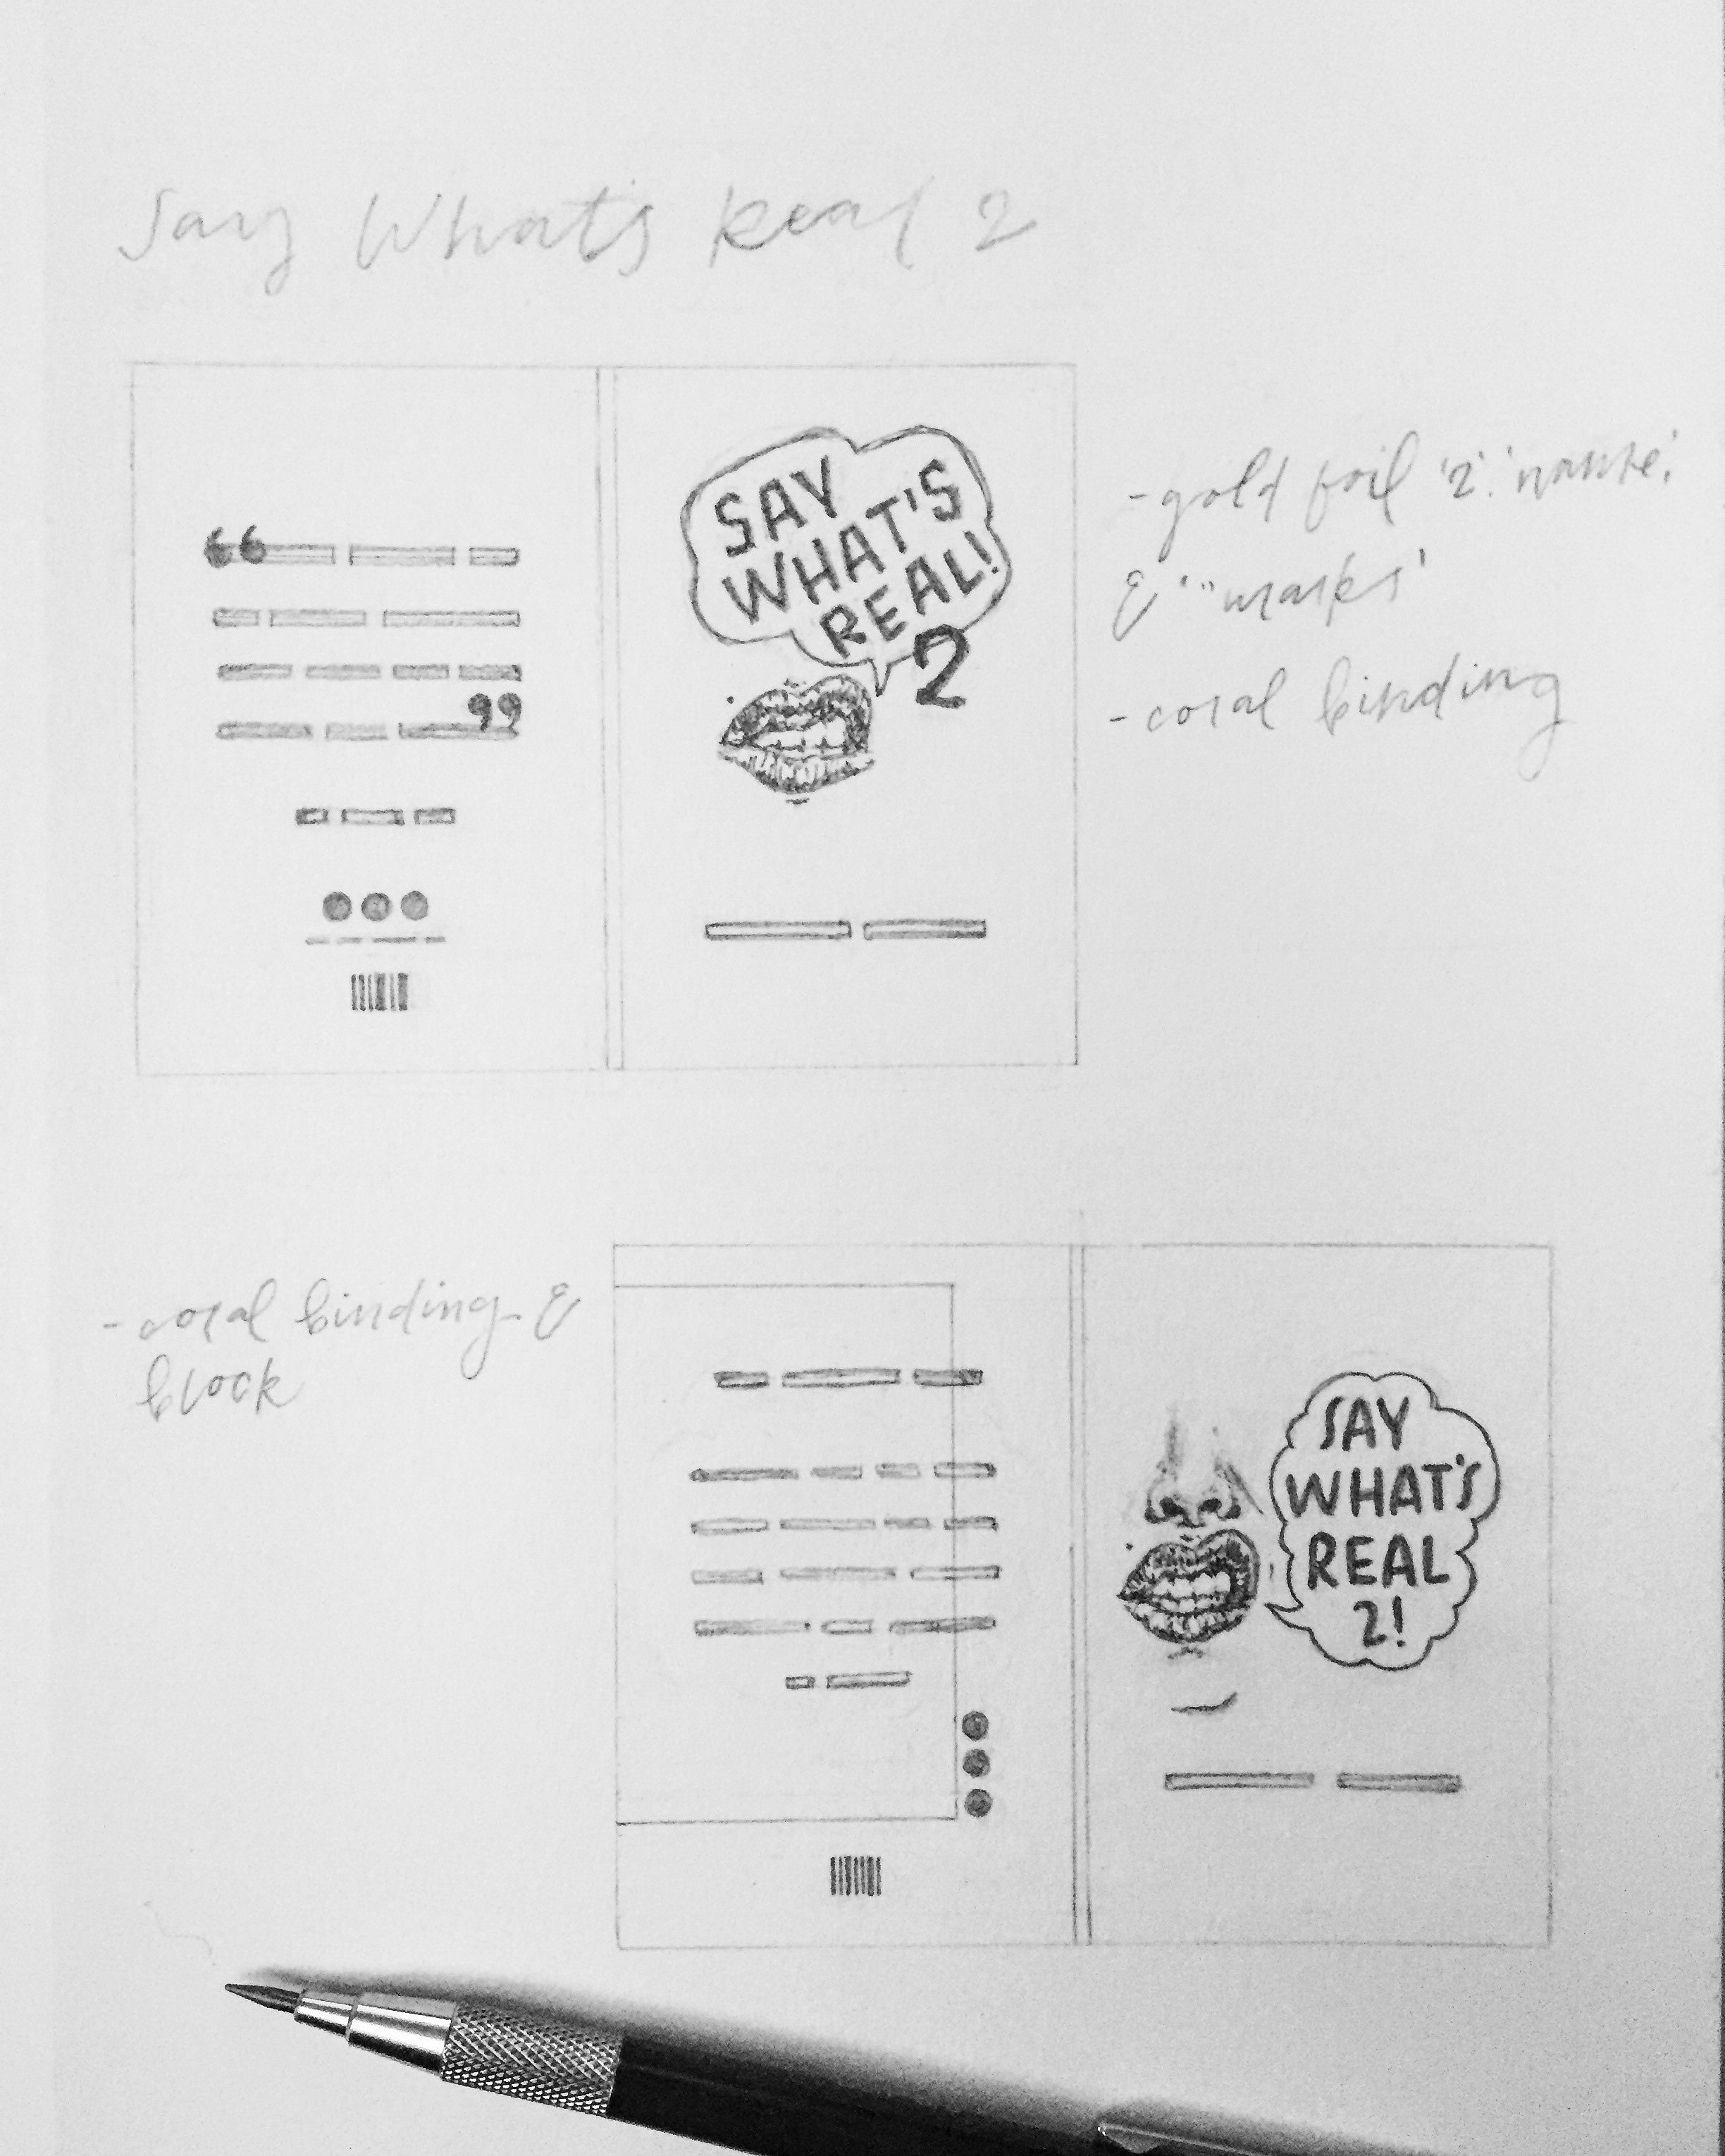 Say What's Real 2
“
”
SAY
WHAT'S
REAL!
2
-gold foil '2' 'name'
& '"marks'
-coral binding
-coral binding &
block
SAY
WHAT'S
REAL
2!